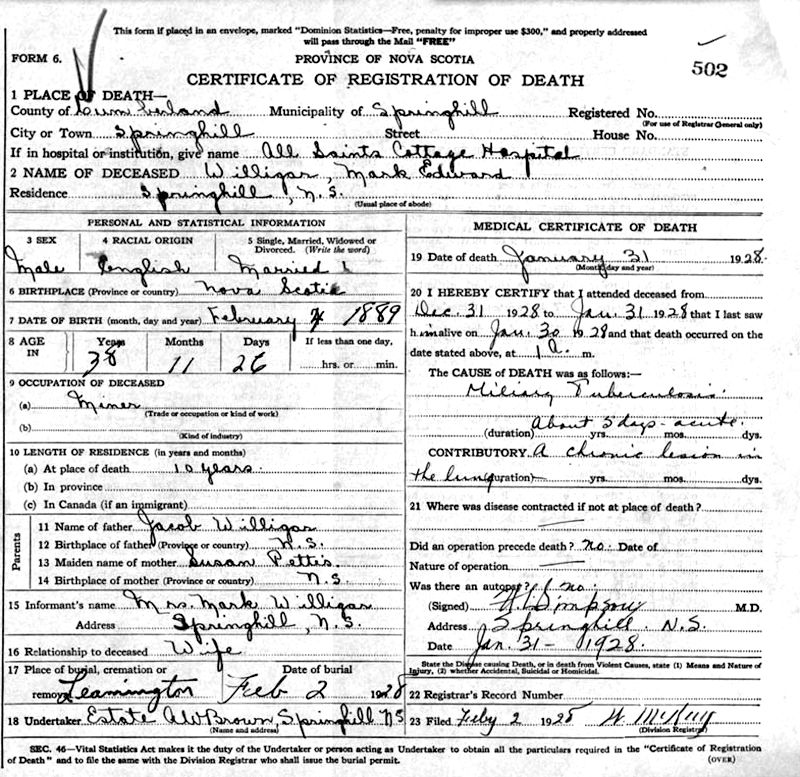 This form if placed in an envelope, marked "Dominion Statistics—Free, penalty for improper use $300," and properly addressed
will pass through the Mail "FREE"
FORM 6.
PROVINCE OF NOVA SCOTIA
502
CERTIFICATE OF REGISTRATION OF DEATH
1 PLACE OF DEATH—
County of Cumberland Municipality of Springhill Registered No.
(For use of Registrar General only)
City or Town Springhill Street House No.
If in hospital or institution, give name All Saints Cottage Hospital
2 NAME OF DECEASED Willigar, Mark Edward
Residence Springhill, N.S.
(Usual place of abode)
PERSONAL AND STATISTICAL INFORMATION
3 SEX 4 RACIAL ORIGIN 5 Single, Married, Widowed or
Divorced. (Write the word)
Male English Married
6 BIRTHPLACE (Province or country) Nova Scotia
7 DATE OF BIRTH (month, day and year) February 4 1889
8 AGE IN Years Months Days If less than one day,
38 11 26 hrs. or min.
9 OCCUPATION OF DECEASED
(a) Miner
(Trade or occupation or kind of work)
(b)
(Kind of industry)
10 LENGTH OF RESIDENCE (in years and months)
(a) At place of death 10 years.
(b) In province
(c) In Canada (if an immigrant)
Parents
11 Name of father Jacob Willigar
12 Birthplace of father (Province or country) N.S.
13 Maiden name of mother Susan Pettis.
14 Birthplace of mother (Province or country) N.S.
15 Informant's name Mrs. Mark Willigar
Address Springhill, N.S.
16 Relationship to deceased Wife
17 Place of burial, cremation or Date of burial
removal Leamington Feb 2 1928
18 Undertaker Estate A W Brown, Springhill NS
(Name and address)
MEDICAL CERTIFICATE OF DEATH
19 Date of death January 31 1928.
(Month, day and year)
20 I HEREBY CERTIFY that I attended deceased from
Dec. 31 1928 to Jan. 31 1928 that I last saw
him alive on Jan. 30 1928 and that death occurred on the
date stated above, at 1 a. m.
The CAUSE of DEATH was as follows:—
Miliary Tuberculosis.
About 5 days - acute.
(duration) yrs. mos. dys.
CONTRIBUTORY A chronic lesion in
the lung (duration) yrs. mos. dys.
21 Where was disease contracted if not at place of death?
Did an operation precede death? no. Date of
Nature of operation
Was there an autopsy? no.
(Signed) Simpson M.D.
Address Springhill N.S.
Date Jan. 31 - 1928.
State the Disease causing Death, or in death from Violent Causes, state (1) Means and Nature of
Injury, (2) whether Accidental, Suicidal or Homicidal.
22 Registrar's Record Number
23 Filed Feby 2 1928
(Division Registrar)
SEC. 46—Vital Statistics Act makes it the duty of the Undertaker or person acting as Undertaker to obtain all the particulars required in the "Certificate of Registration
of Death" and to file the same with the Division Registrar who shall issue the burial permit.
(OVER)